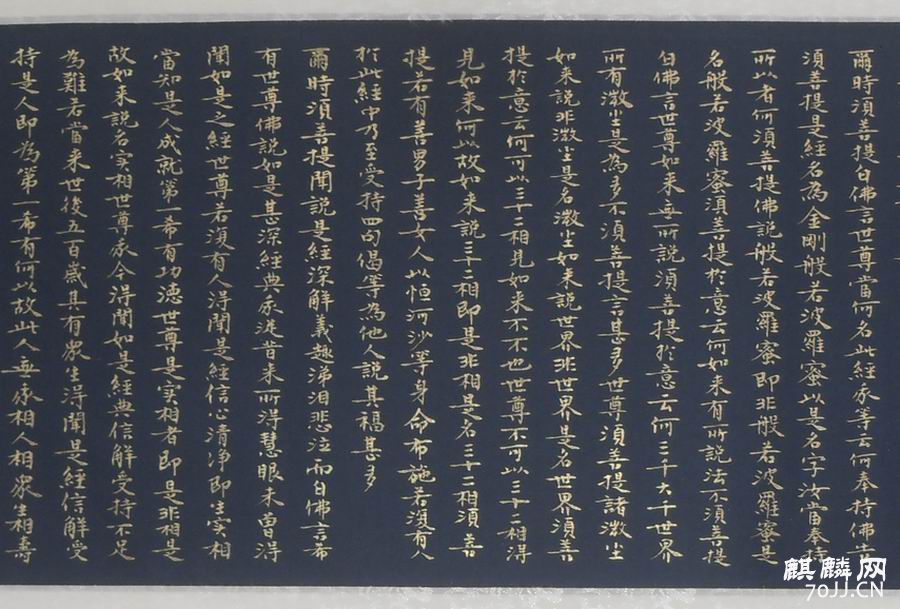 爾時須菩提白佛言世尊當何名此經我等云何奉持佛告
須菩提是經名為金剛般若波羅蜜以是名字汝當奉持
所以者何須菩提佛說般若波羅蜜即非般若波羅蜜是
名般若波羅蜜須菩提於意云何如來有所說法不須菩提
白佛言世尊如來無所說須菩提於意云何三千大千世界
所有微塵是為多不須菩提言甚多世尊須菩提諸微塵
如來說非微塵是名微塵如來說世界非世界是名世界須菩
提於意云何可以三十二相見如來不不也世尊不可以三十二相得
見如來何以故如來說三十二相即是非相是名三十二相須菩
提若有善男子善女人以恒河沙等身命布施若復有人
於此經中乃至受持四句偈等為他人說其福甚多
爾時須菩提聞說是經深解義趣涕淚悲泣而白佛言希
有世尊佛說如是甚深經典我從昔來所得慧眼未曾得
聞如是之經世尊若復有人得聞是經信心清淨即生實相
當知是人成就第一希有功德世尊是實相者即是非相是
故如來說名實相世尊我今得聞如是經典信解受持不足
為難若當來世後五百歲其有眾生得聞是經信解受
持是人即為第一希有何以故此人無我相人相眾生相壽
麒麟网
70JJ.CN